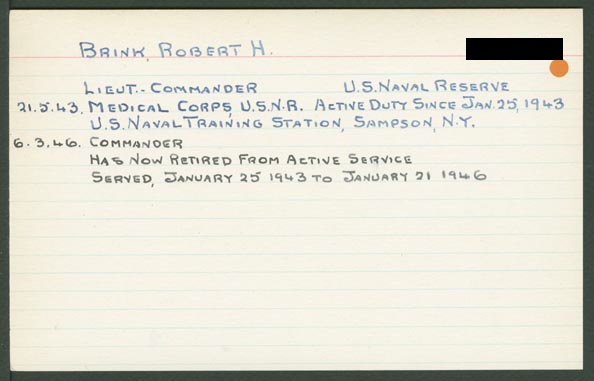 BRINK, ROBERT H.
LIEUT.- COMMANDER U.S. NAVAL RESERVE
21.5.43. MEDICAL CORPS, U.S.N.R. ACTIVE DUTY SINCE JAN. 25, 1943
U.S. NAVAL TRAINING STATION, SAMPSON, N.Y.
6.3.46. COMMANDER
HAS NOW RETIRED FROM ACTIVE SERVICE
SERVED, JANUARY 25 1943 TO JANUARY 21 1946